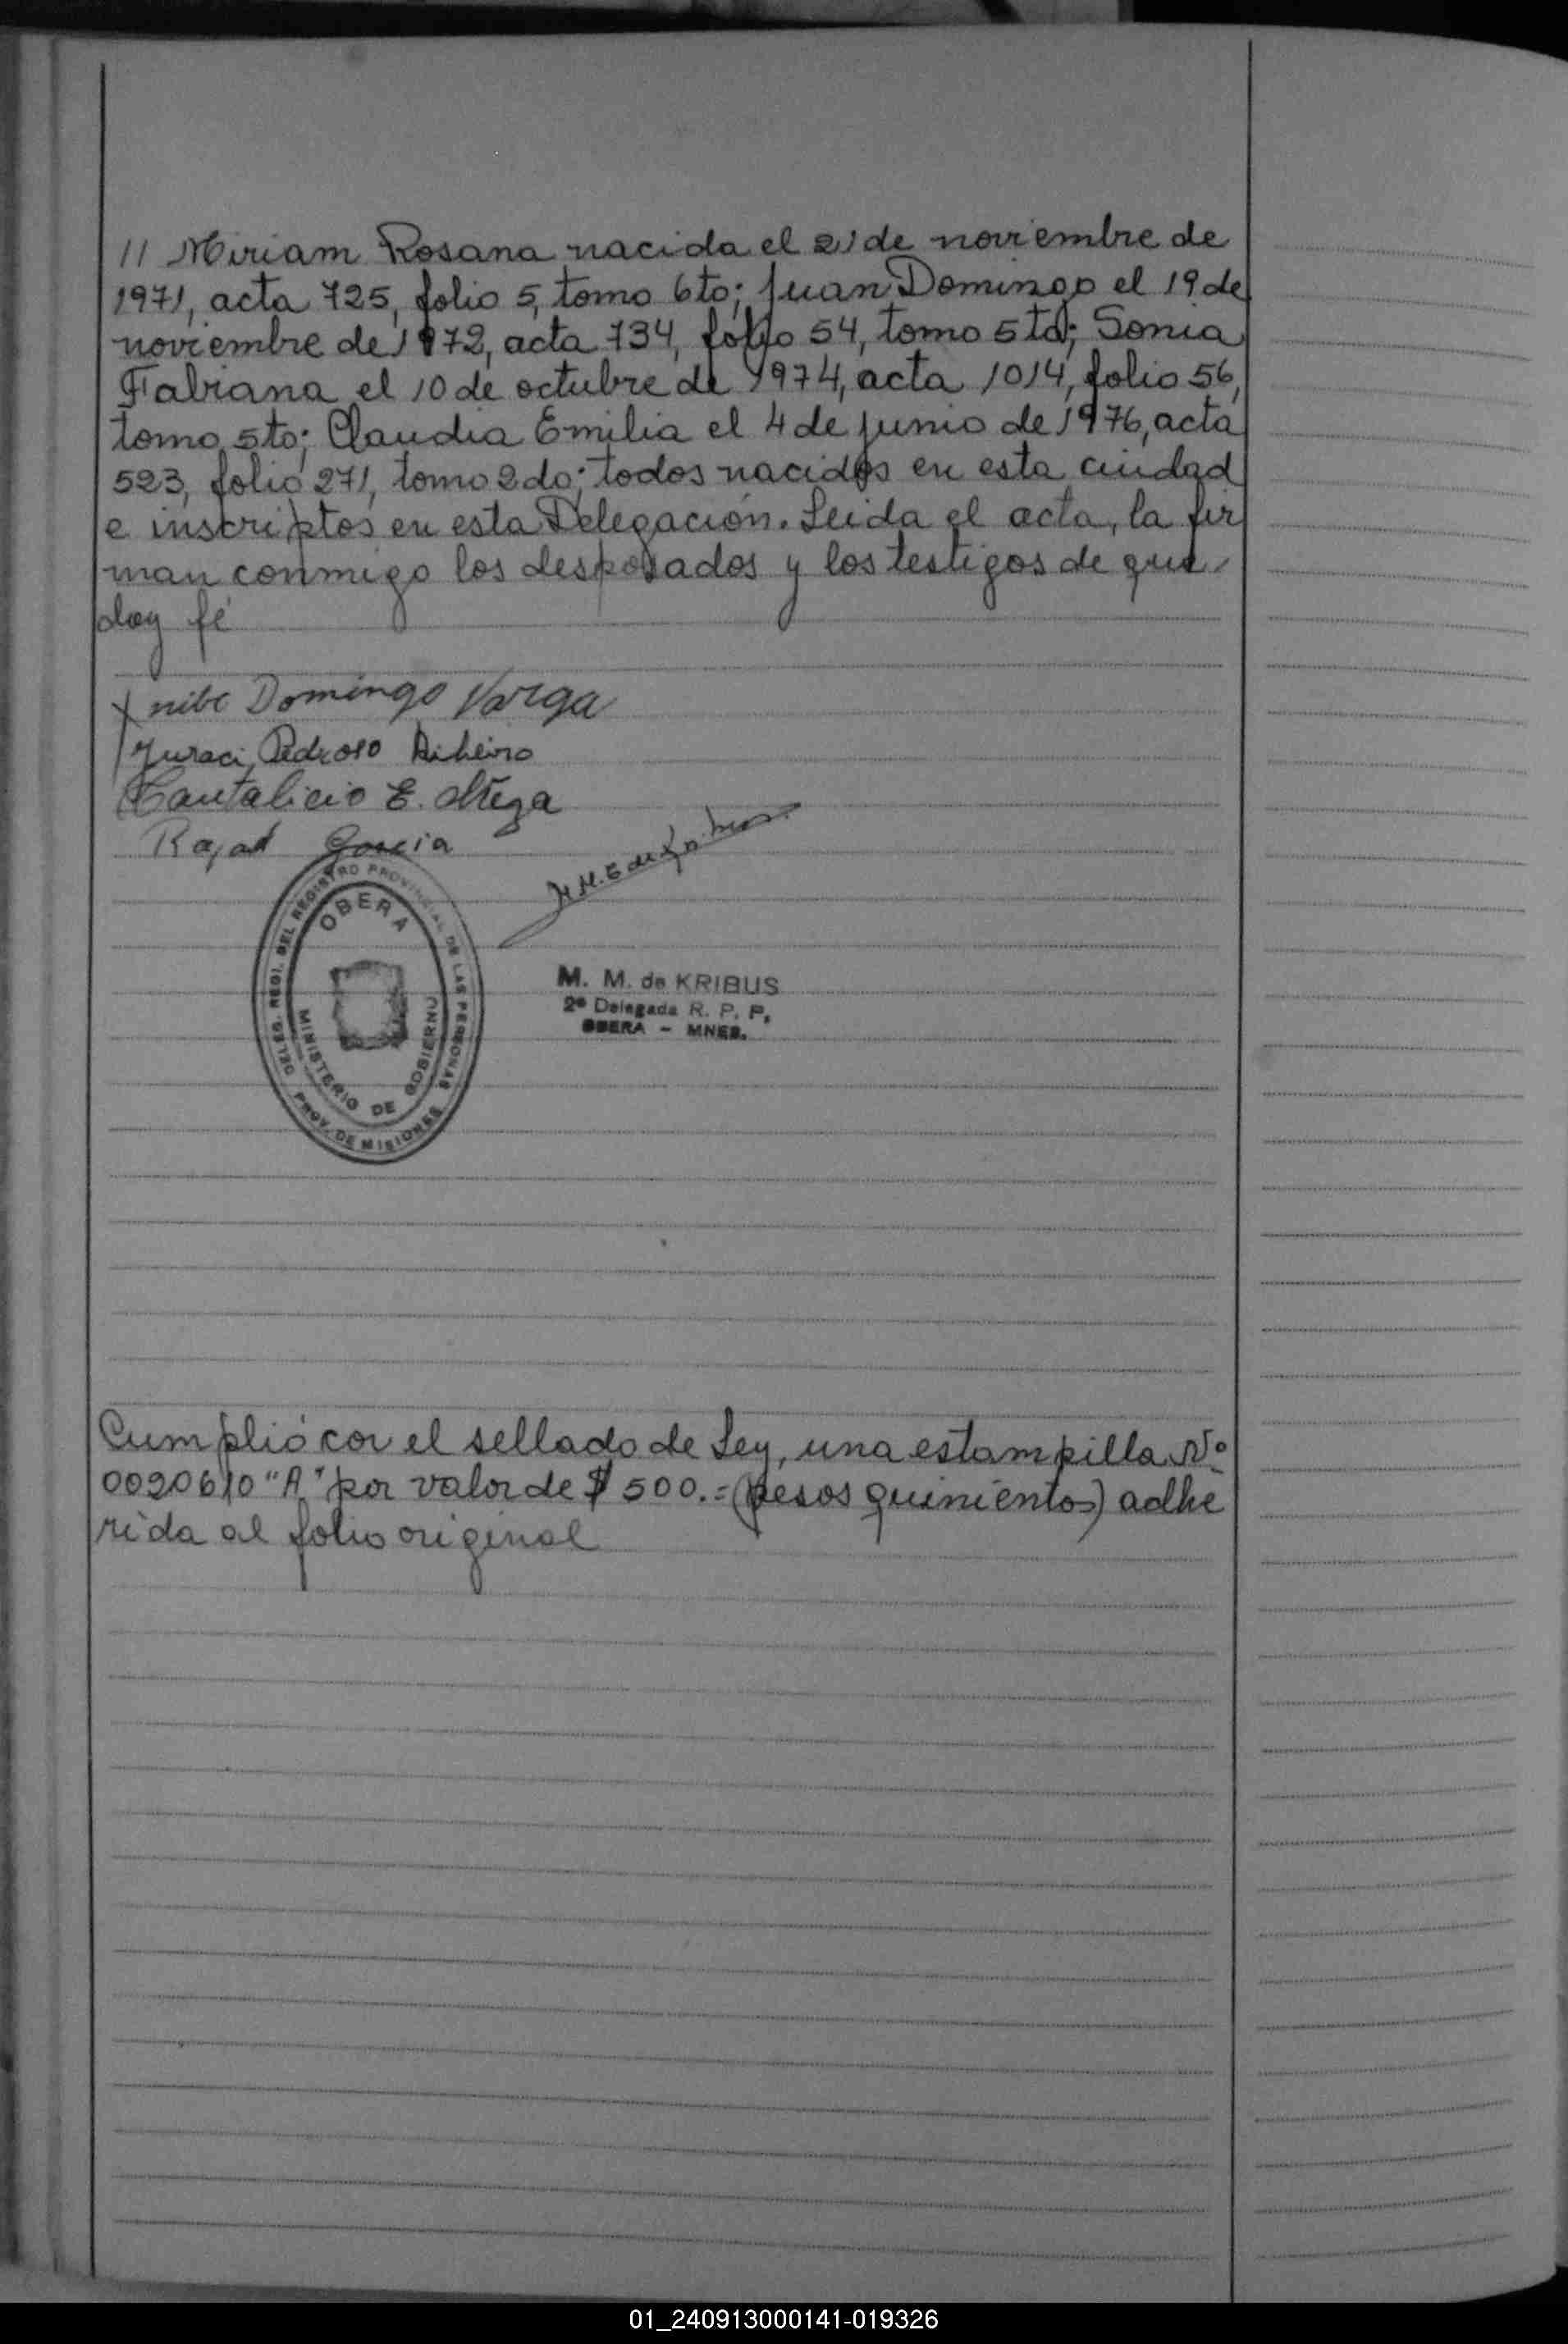 // Miriam Rosana nacida el 21 de noviembre de
1971, acta 725, folio 5, tomo 6to; Juan Domingo el 19 de
noviembre de 1972, acta 734, folio 54, tomo 5to; Sonia
Fabiana el 10 de octubre de 1974, acta 1014, folio 56,
tomo 5to; Claudia Emilia el 4 de junio de 1976, acta
523, folio 271, tomo 2do; todos nacidos en esta ciudad
e inscriptos en esta Delegación. Leida el acta, la fir
man conmigo los desposados y los testigos de que
doy fé
Domingo Varga
Juraci Pedroso Ribeiro
Cantalicio E.
Garcia
DELEG. REGI. DEL REGISTRO PROVINCIAL DE LAS PERSONAS
OBERA
MINISTERIO DE GOBIERNO
PROV. DE MISIONES
M. M. de KRIBUS
2ª Delegada R. P. P.
OBERA - MNES.
Cumplió con el sellado de Ley, una estampilla Nº
0020610 "A" por valor de $ 500.= (pesos quinientos) adhe
rida al folio original
01_240913000141-019326